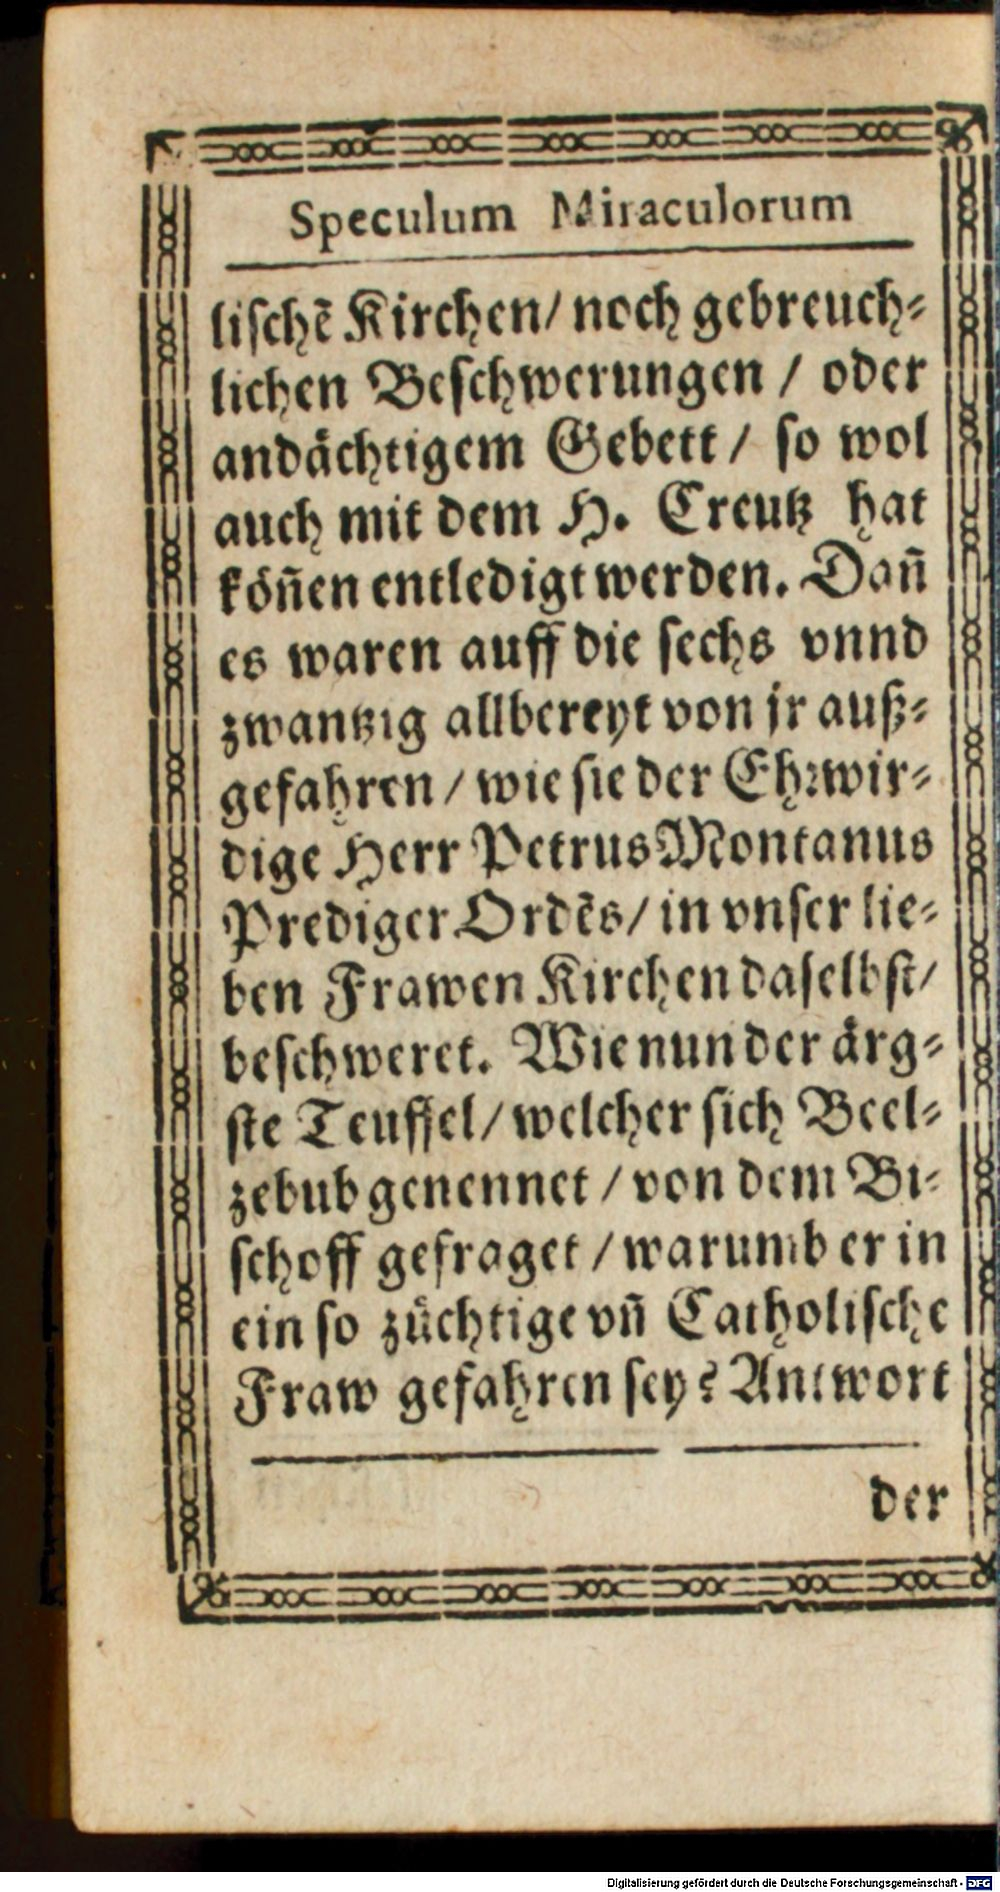 Speculum Miraculorum
lischē Kirchen/ noch gebreuch⸗
lichen Beschwerungen / oder
andächtigem Gebett / so wol
auch mit dem H. Creutz hat
köñen entledigt werden. Dañ
es waren auff die sechs vnnd
zwantzig allbereyt von jr auß⸗
gefahren / wie sie der Ehꝛwir⸗
dige Herr Petrus Montanus
Prediger Ordēs / in vnser lie⸗
ben Frawen Kirchen daselbst/
beschweret. Wie nun der ärg⸗
ste Teuffel/ welcher sich Beel⸗
zebub genennet / von dem Bi⸗
schoff gefraget / warumb er in
ein so züchtige vñ Catholische
Fraw gefahren sey? Antwort
der
Digitalisierung gefördert durch die Deutsche Forschungsgemeinschaft - DFG